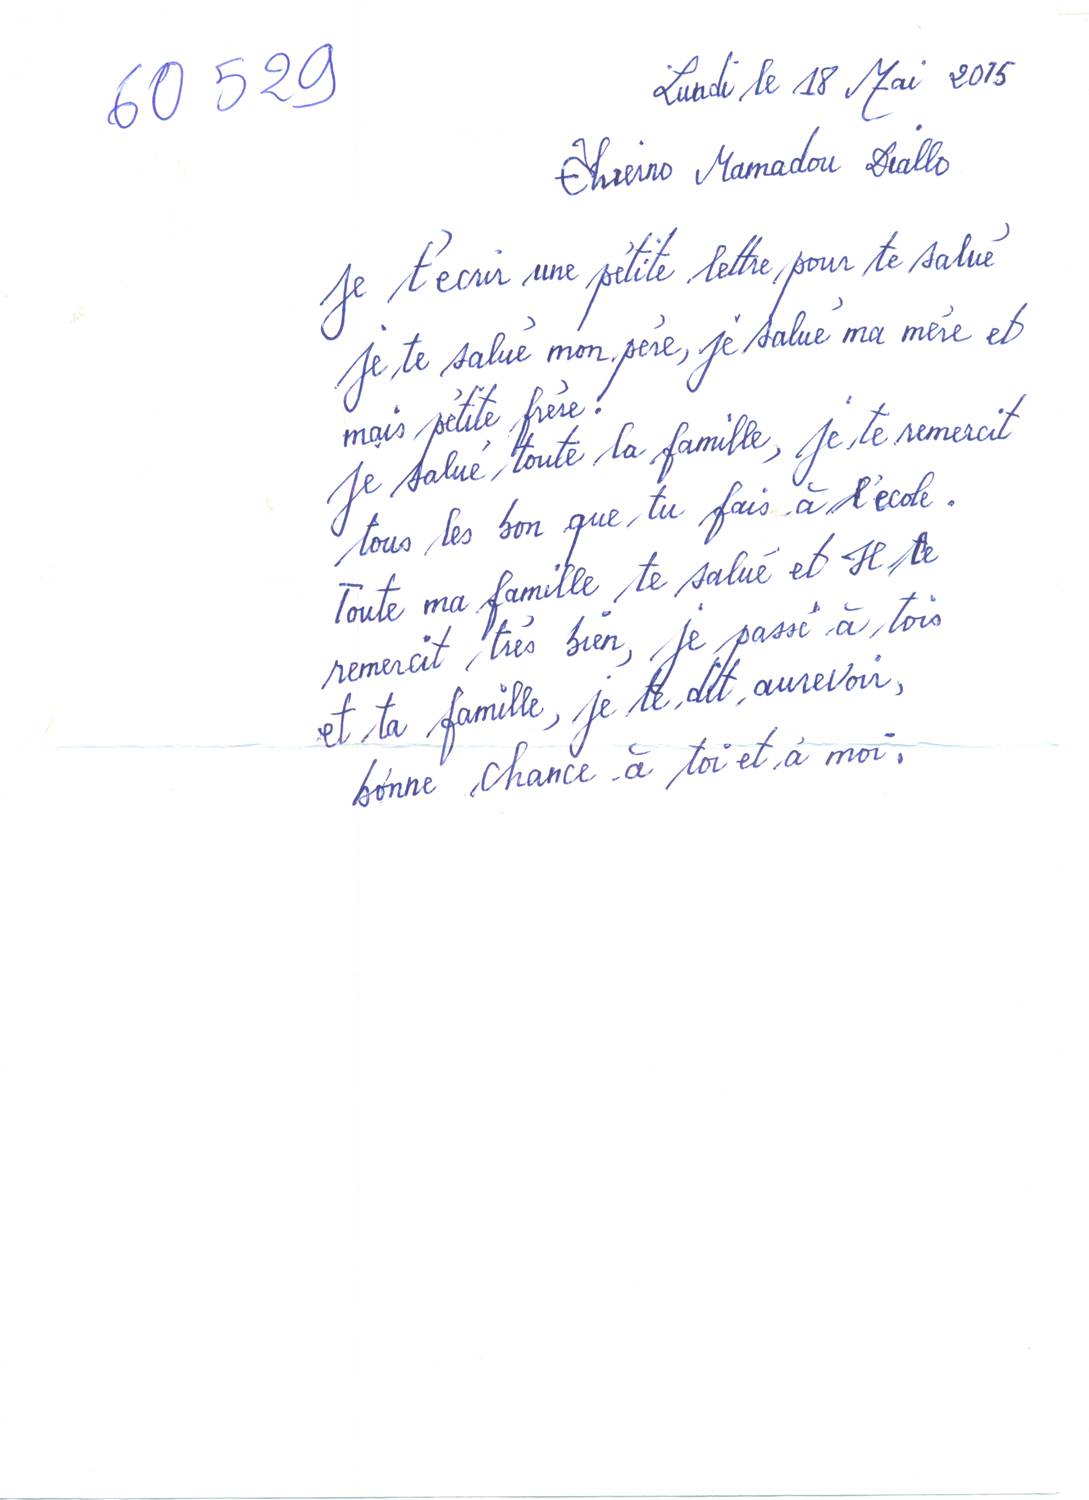 60 529
Lundi le 18 Mai 2015
Thierno Mamadou Diallo
Je t'ecrir une pétite lettre pour te salué
je te salué mon père, je salué ma mère et
mais pétite frère.
Je salué toute la famille, je te remercit
tous les bon que tu fais à l'ecole.
Toute ma famille te salué et Je te
remercit très bien, je passé à tois
et ta famille, je te dit aurevoir,
bonne chance à toi et à moi.